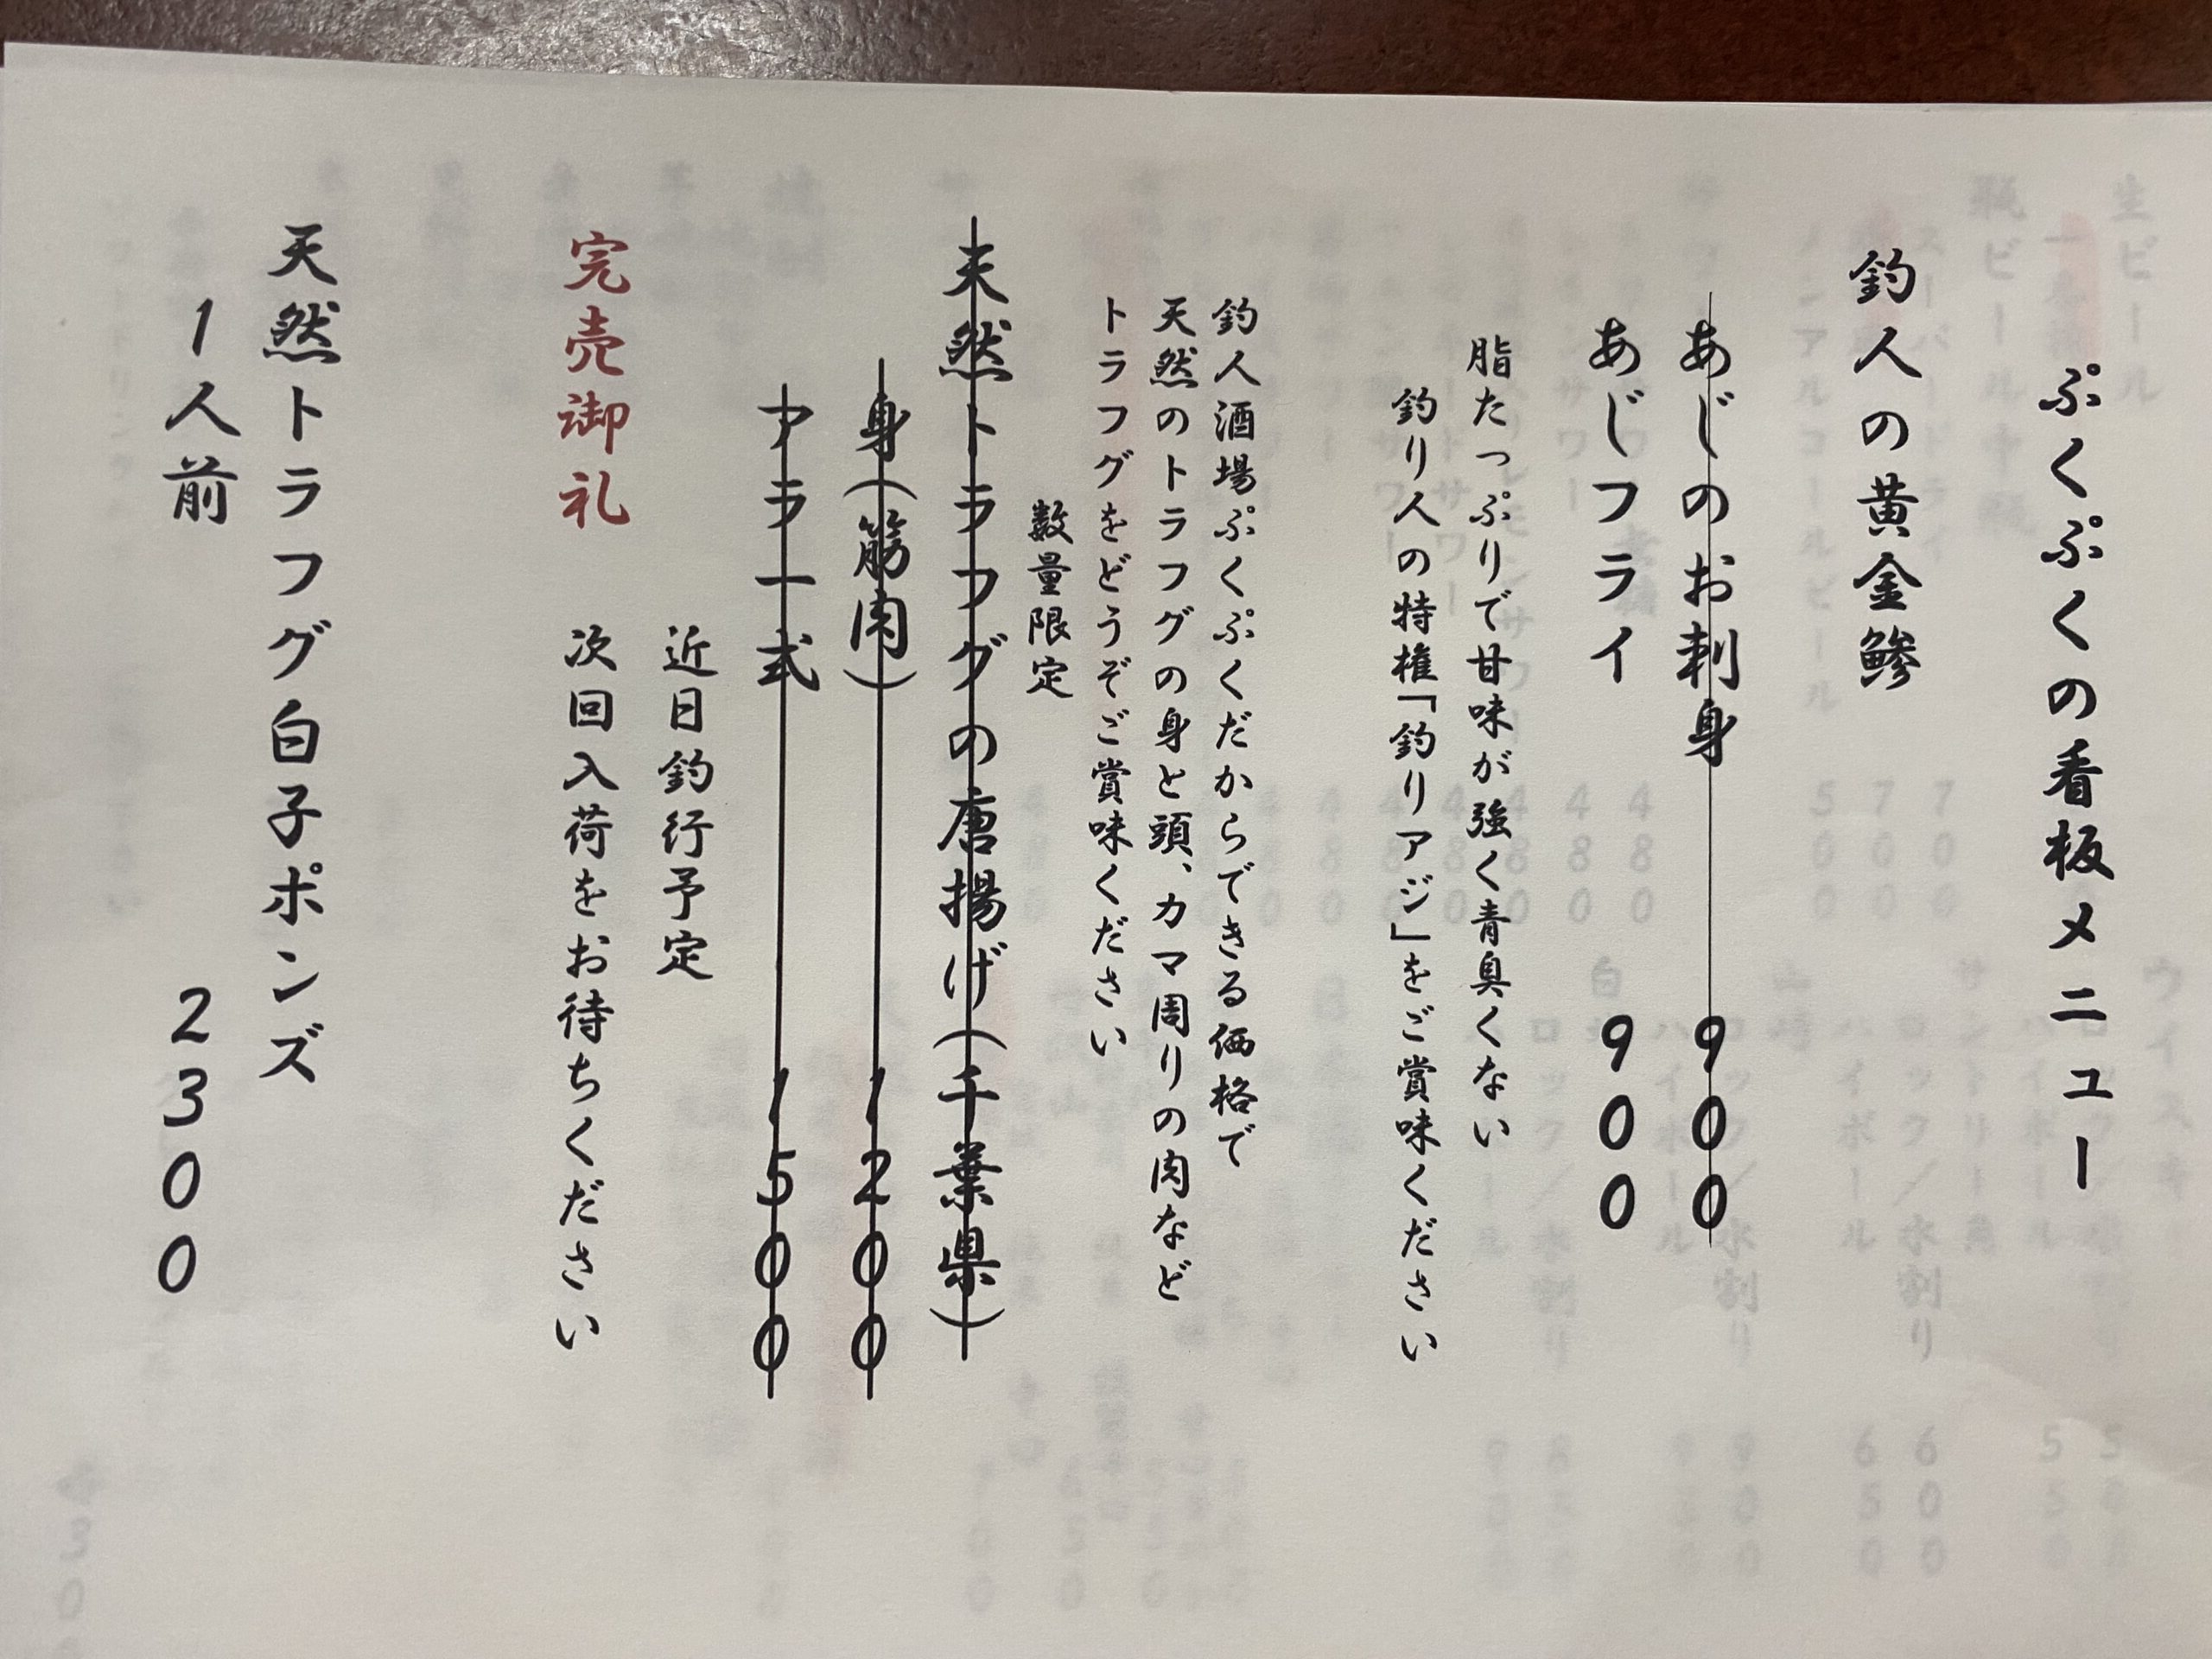 ぷくぷくの看板メニュー
釣人の黄金鯵
あじのお刺身 900
あじフライ 900
脂たっぷりで甘味が強く青臭くない
釣り人の特権「釣りアジ」をご賞味ください
釣人酒場ぷくぷくだからできる価格で
天然のトラフグの身と頭、カマ周りの肉など
トラフグをどうぞご賞味ください
数量限定
天然トラフグの唐揚げ(千葉県)
身(筋肉) 1200
アラ一式 1500
近日釣行予定
完売御礼 次回入荷をお待ちください
天然トラフグ白子ポンズ
1人前 2300